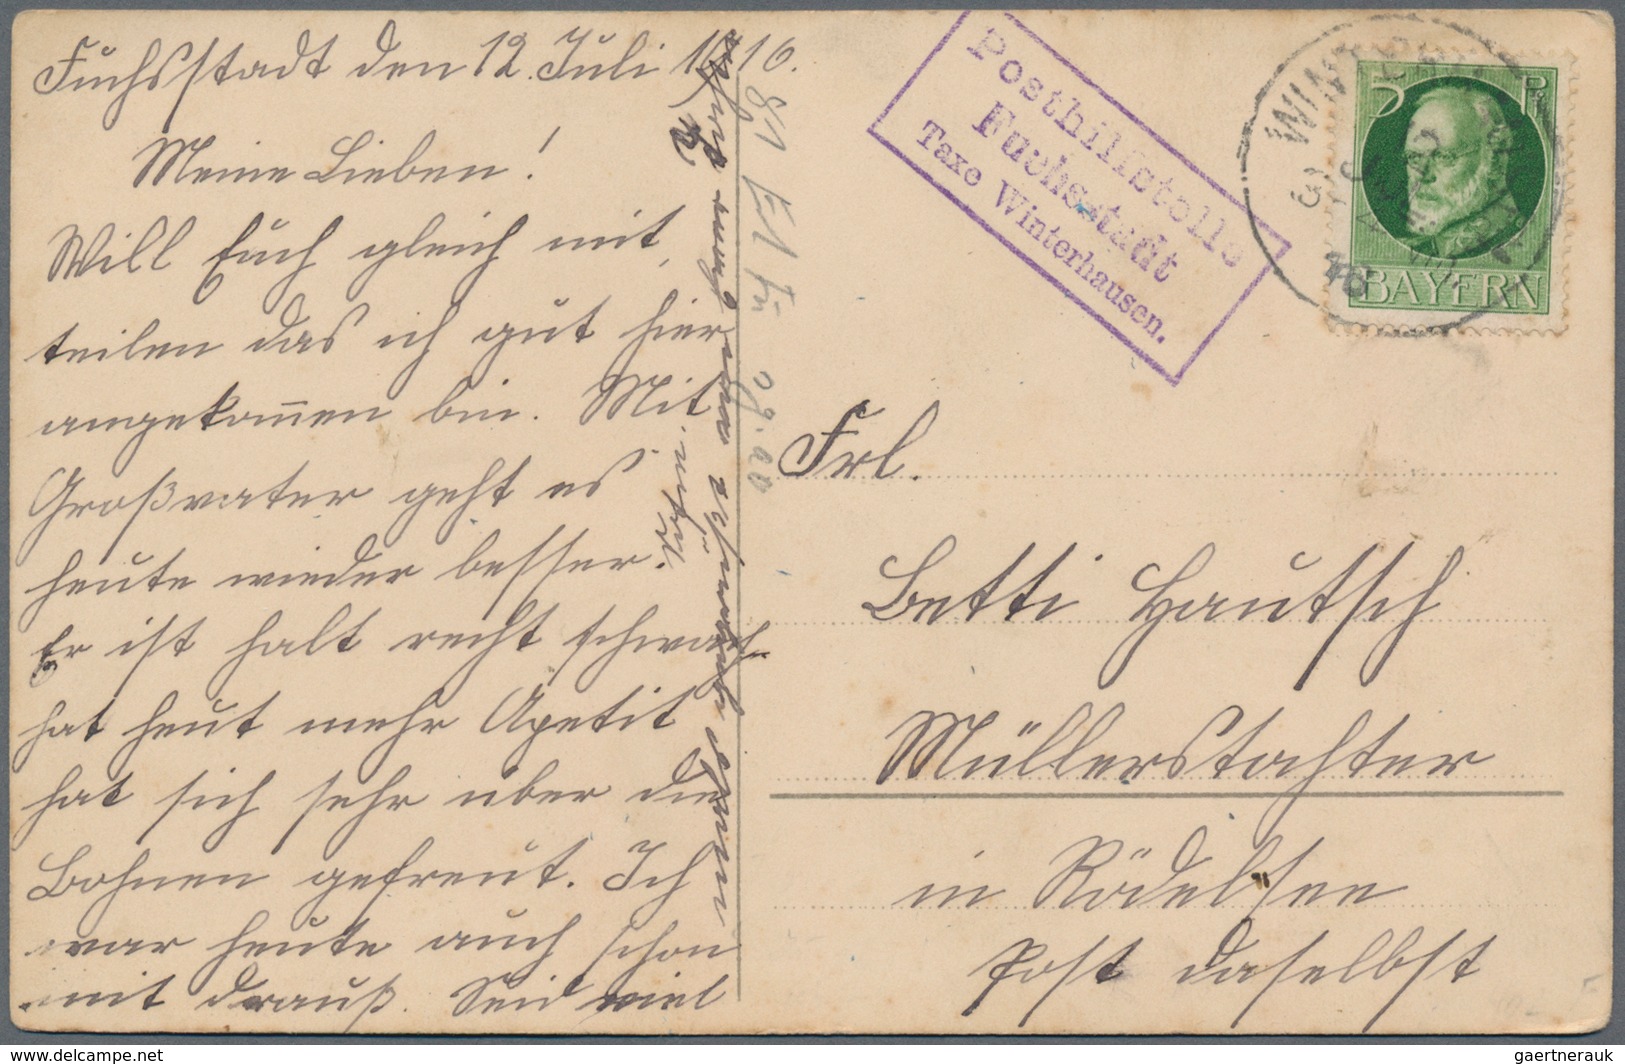 Fuchsstadt den 12. Juli 1916.
Meine Lieben!
Will Euch gleich mit
teilen das ich gut hier
angekom̄en bin. Mit
Großvater geht es
heute wieder besser.
Er ist halt recht schwach
hat heut mehr Apetit
hat sich sehr über die
Bohnen gefreut. Ich
war heute auch schon
mit drauß. Seid viel
Posthilfstelle
Fuchsstadt
Taxe Winterhausen.
5 Pf
BAYERN
Frl.
Betti Hautsch
Müllerstochter
in Rödelsee
Post daselbst
gaertnerauk